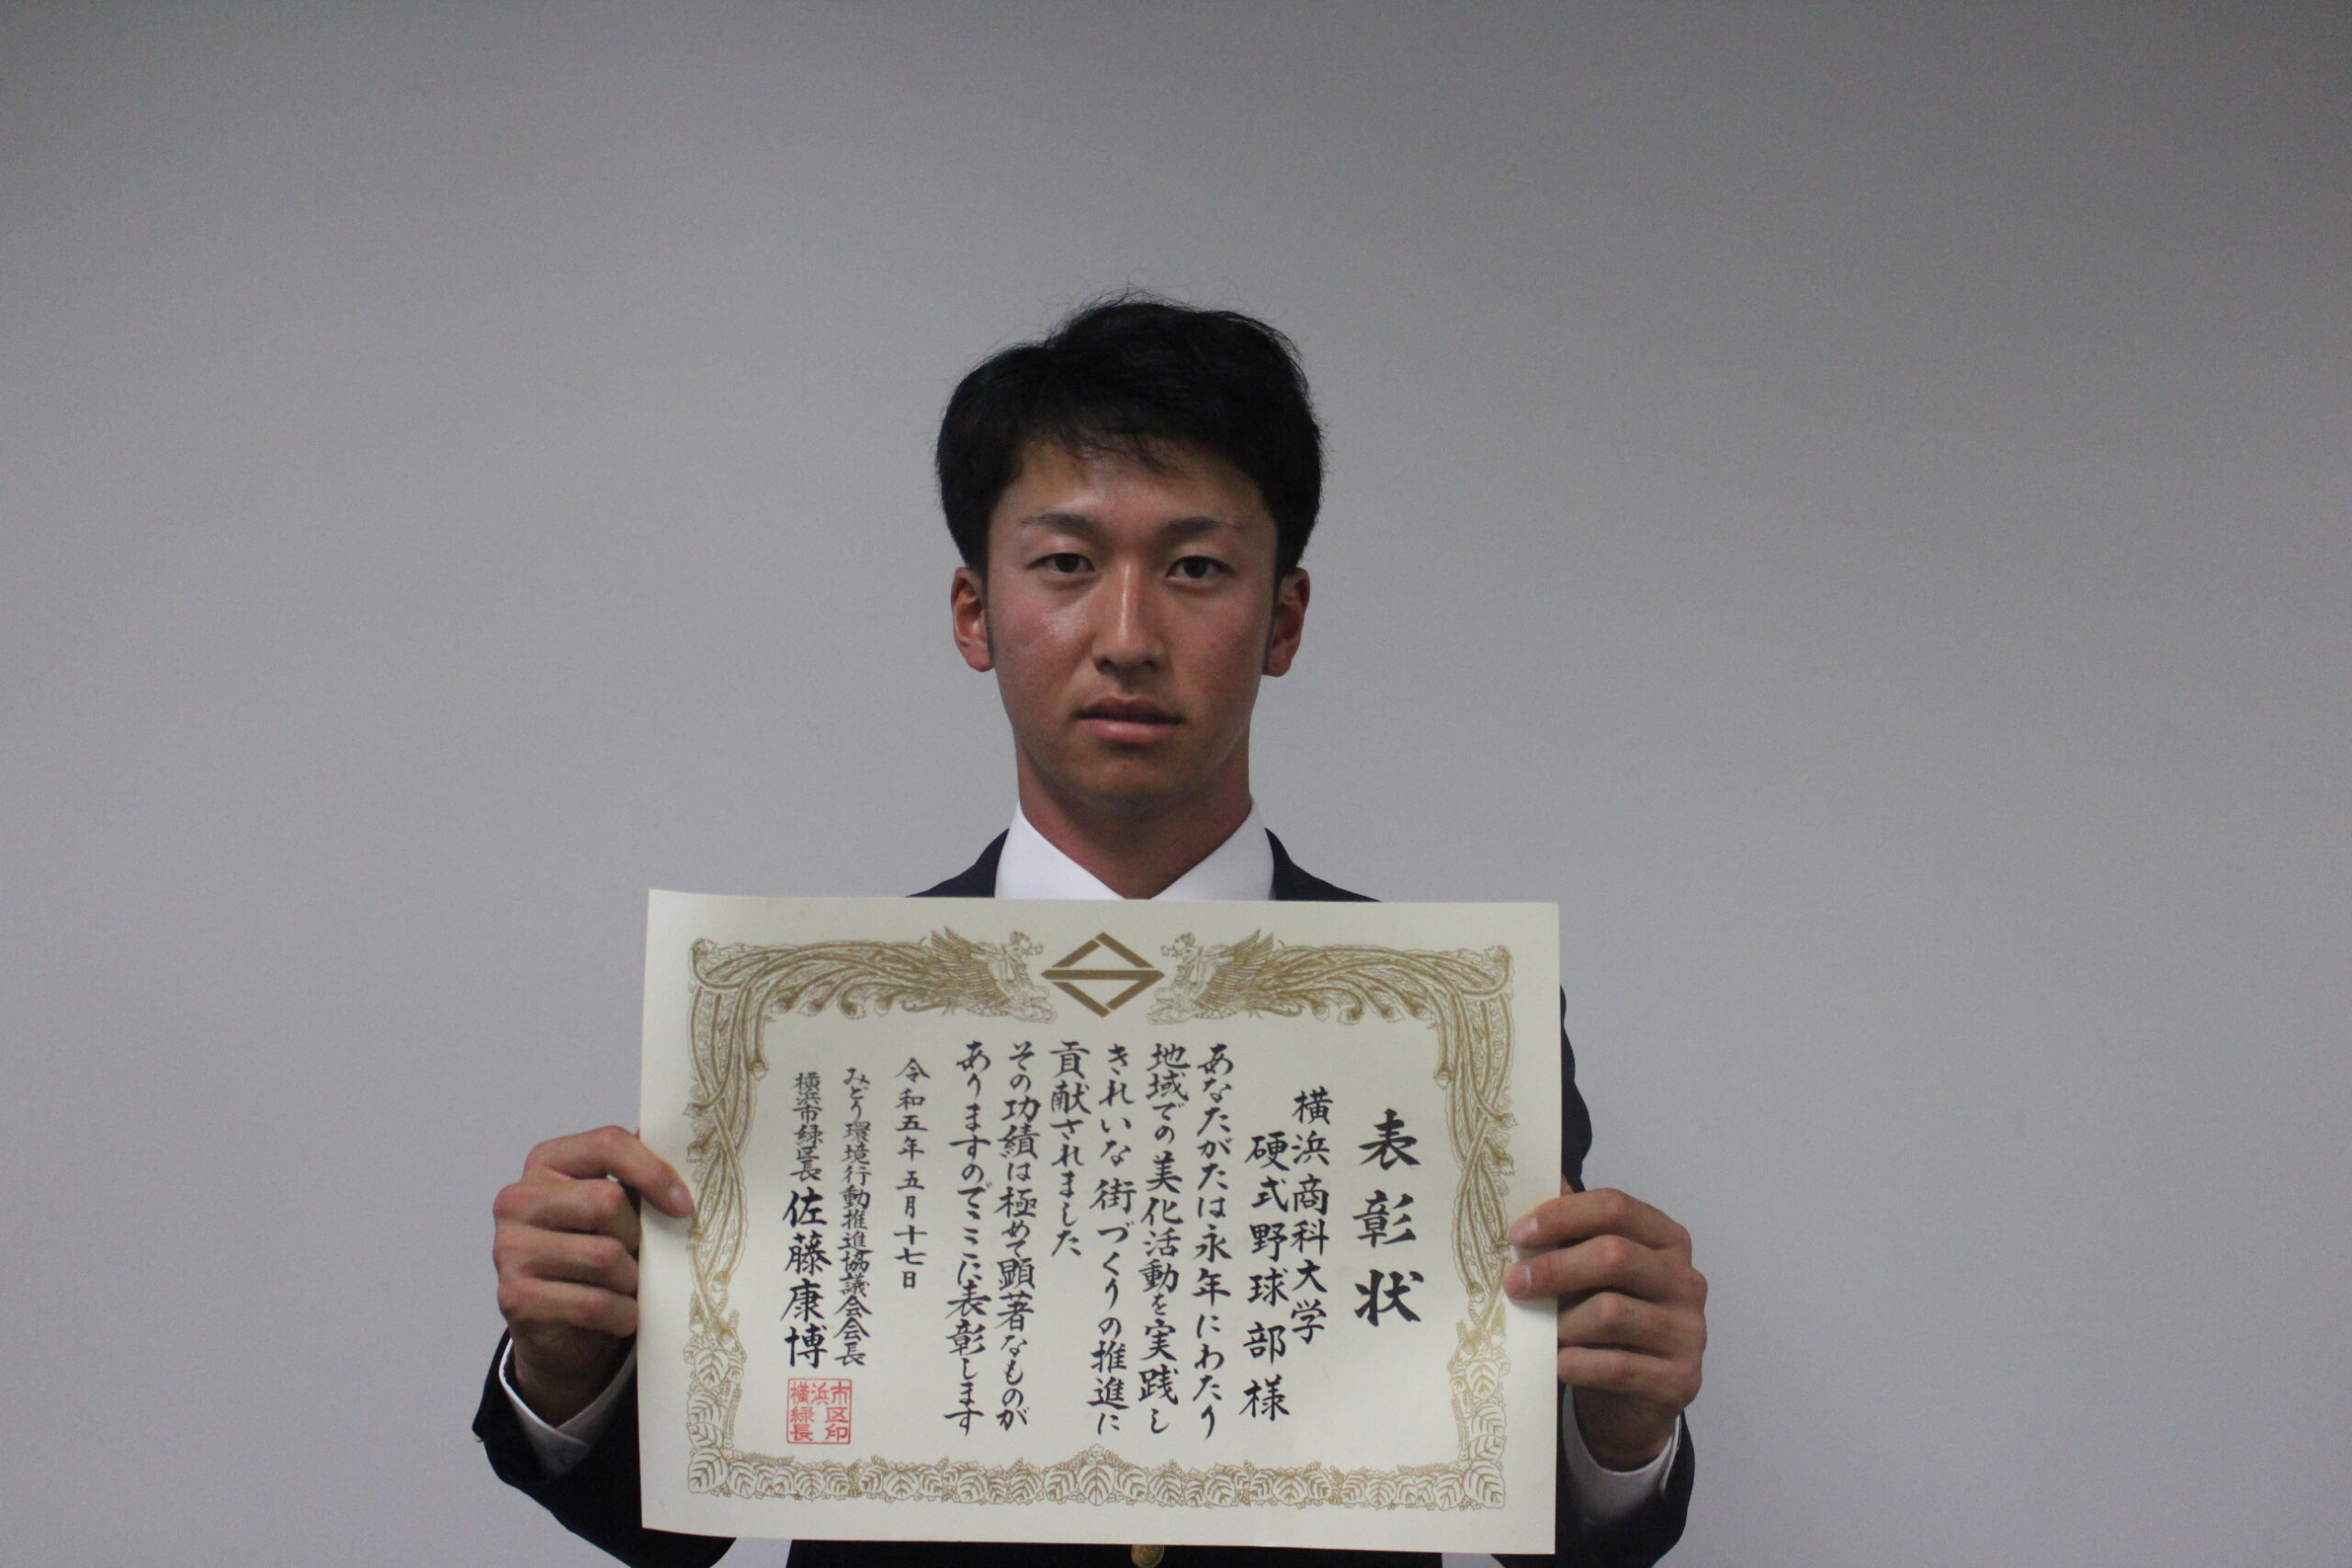 表彰状
横浜商科大学
硬式野球部様
あなたがたは永年にわたり
地域での美化活動を実践し
きれいな街づくりの推進に
貢献されました
その功績は極めて顕著なものが
ありますのでここに表彰します
令和五年五月十七日
みどり環境行動推進協議会会長
横浜市緑区長 佐藤康博
市区印
浜
横緑長